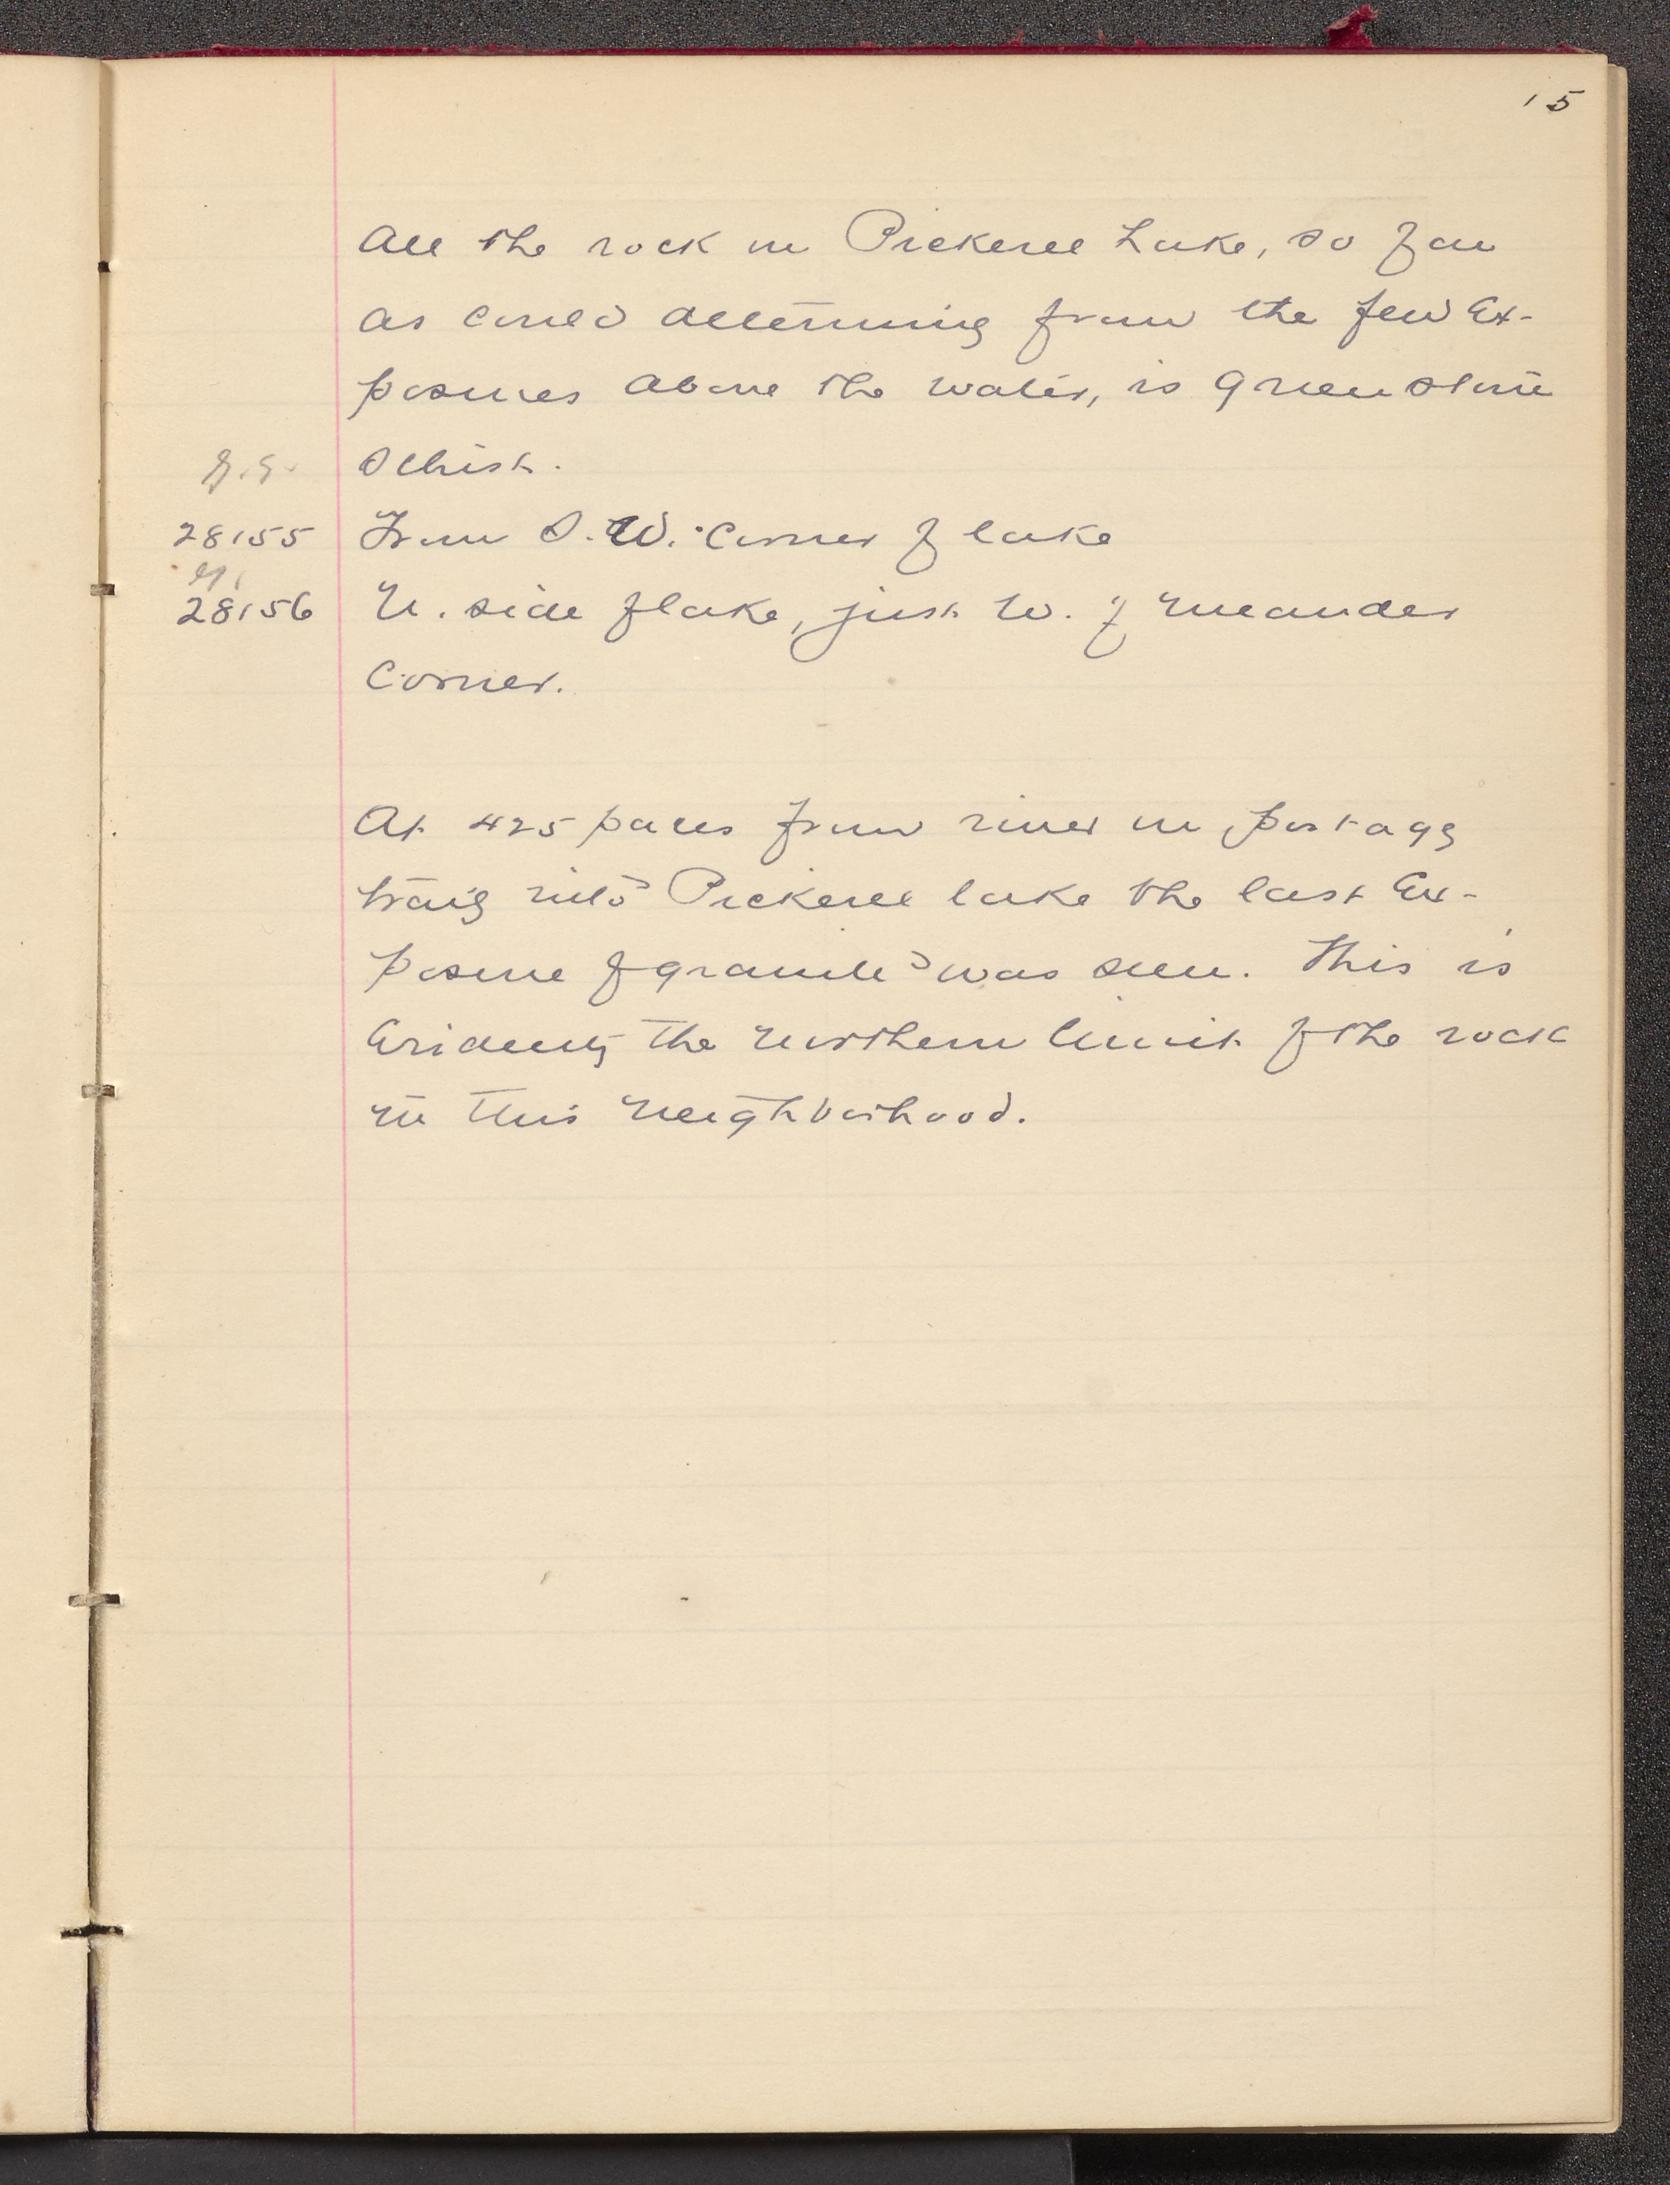 15
All the rock in Pickerel Lake, so far
as could determine from the few ex-
posures above the water, is greenstone
schist.
28155 From S.W. corner of lake
28156 N. side of lake, just W. of meander
corner.
At 425 paces from river in portage
trail into Pickerel lake the last ex-
posure of granite was seen. This is
evidently the northern limit of the rock
in this neighborhood.